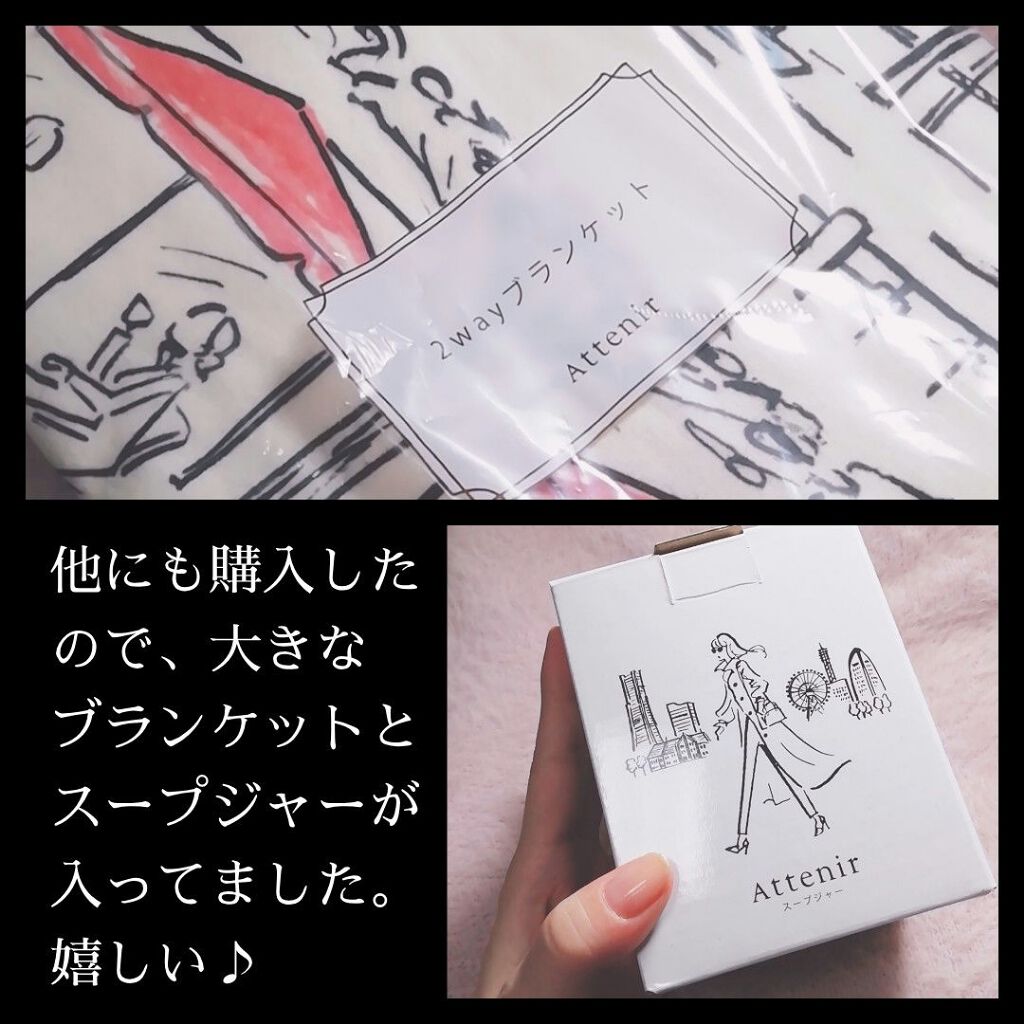 2wayブランケット
Attenir
他にも購入した
ので、大きな
ブランケットと
スープジャーが
入ってました。
嬉しい♪
Attenir
スープジャー